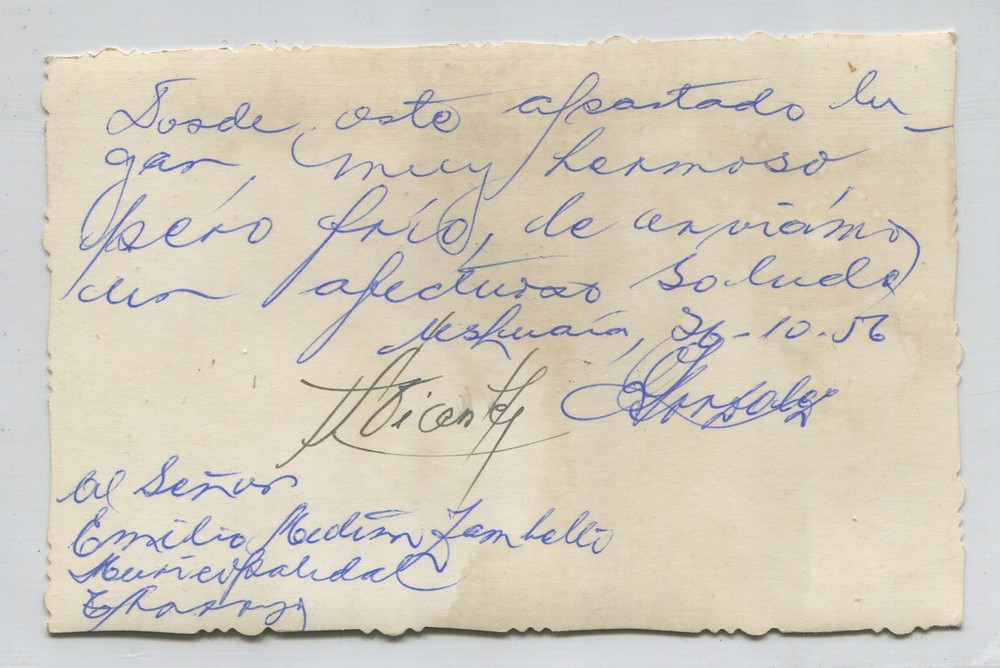 Desde este apartado lu-
gar, muy hermoso
pero frío, le enviamos
un afectuoso saludo
Ushuaia, 26-10-56
Vicente Gonzalez
Al Señor
Emilio Medina Zambelli
Municipalidad